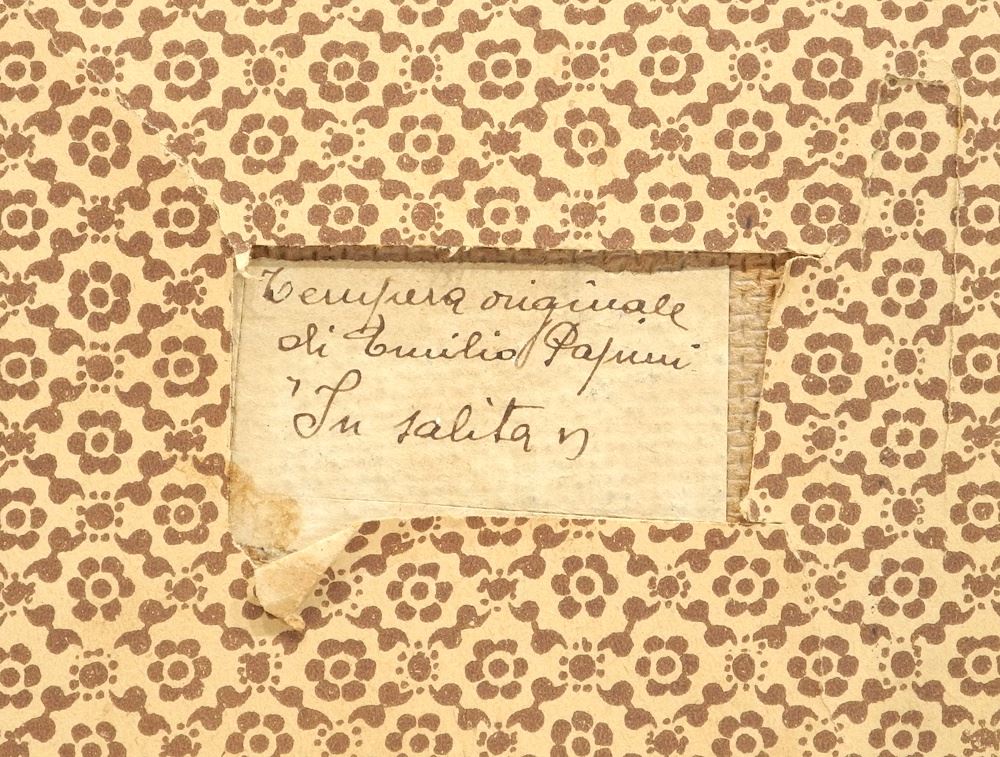 Tempera originale
di Emilio Papini
"In salita"